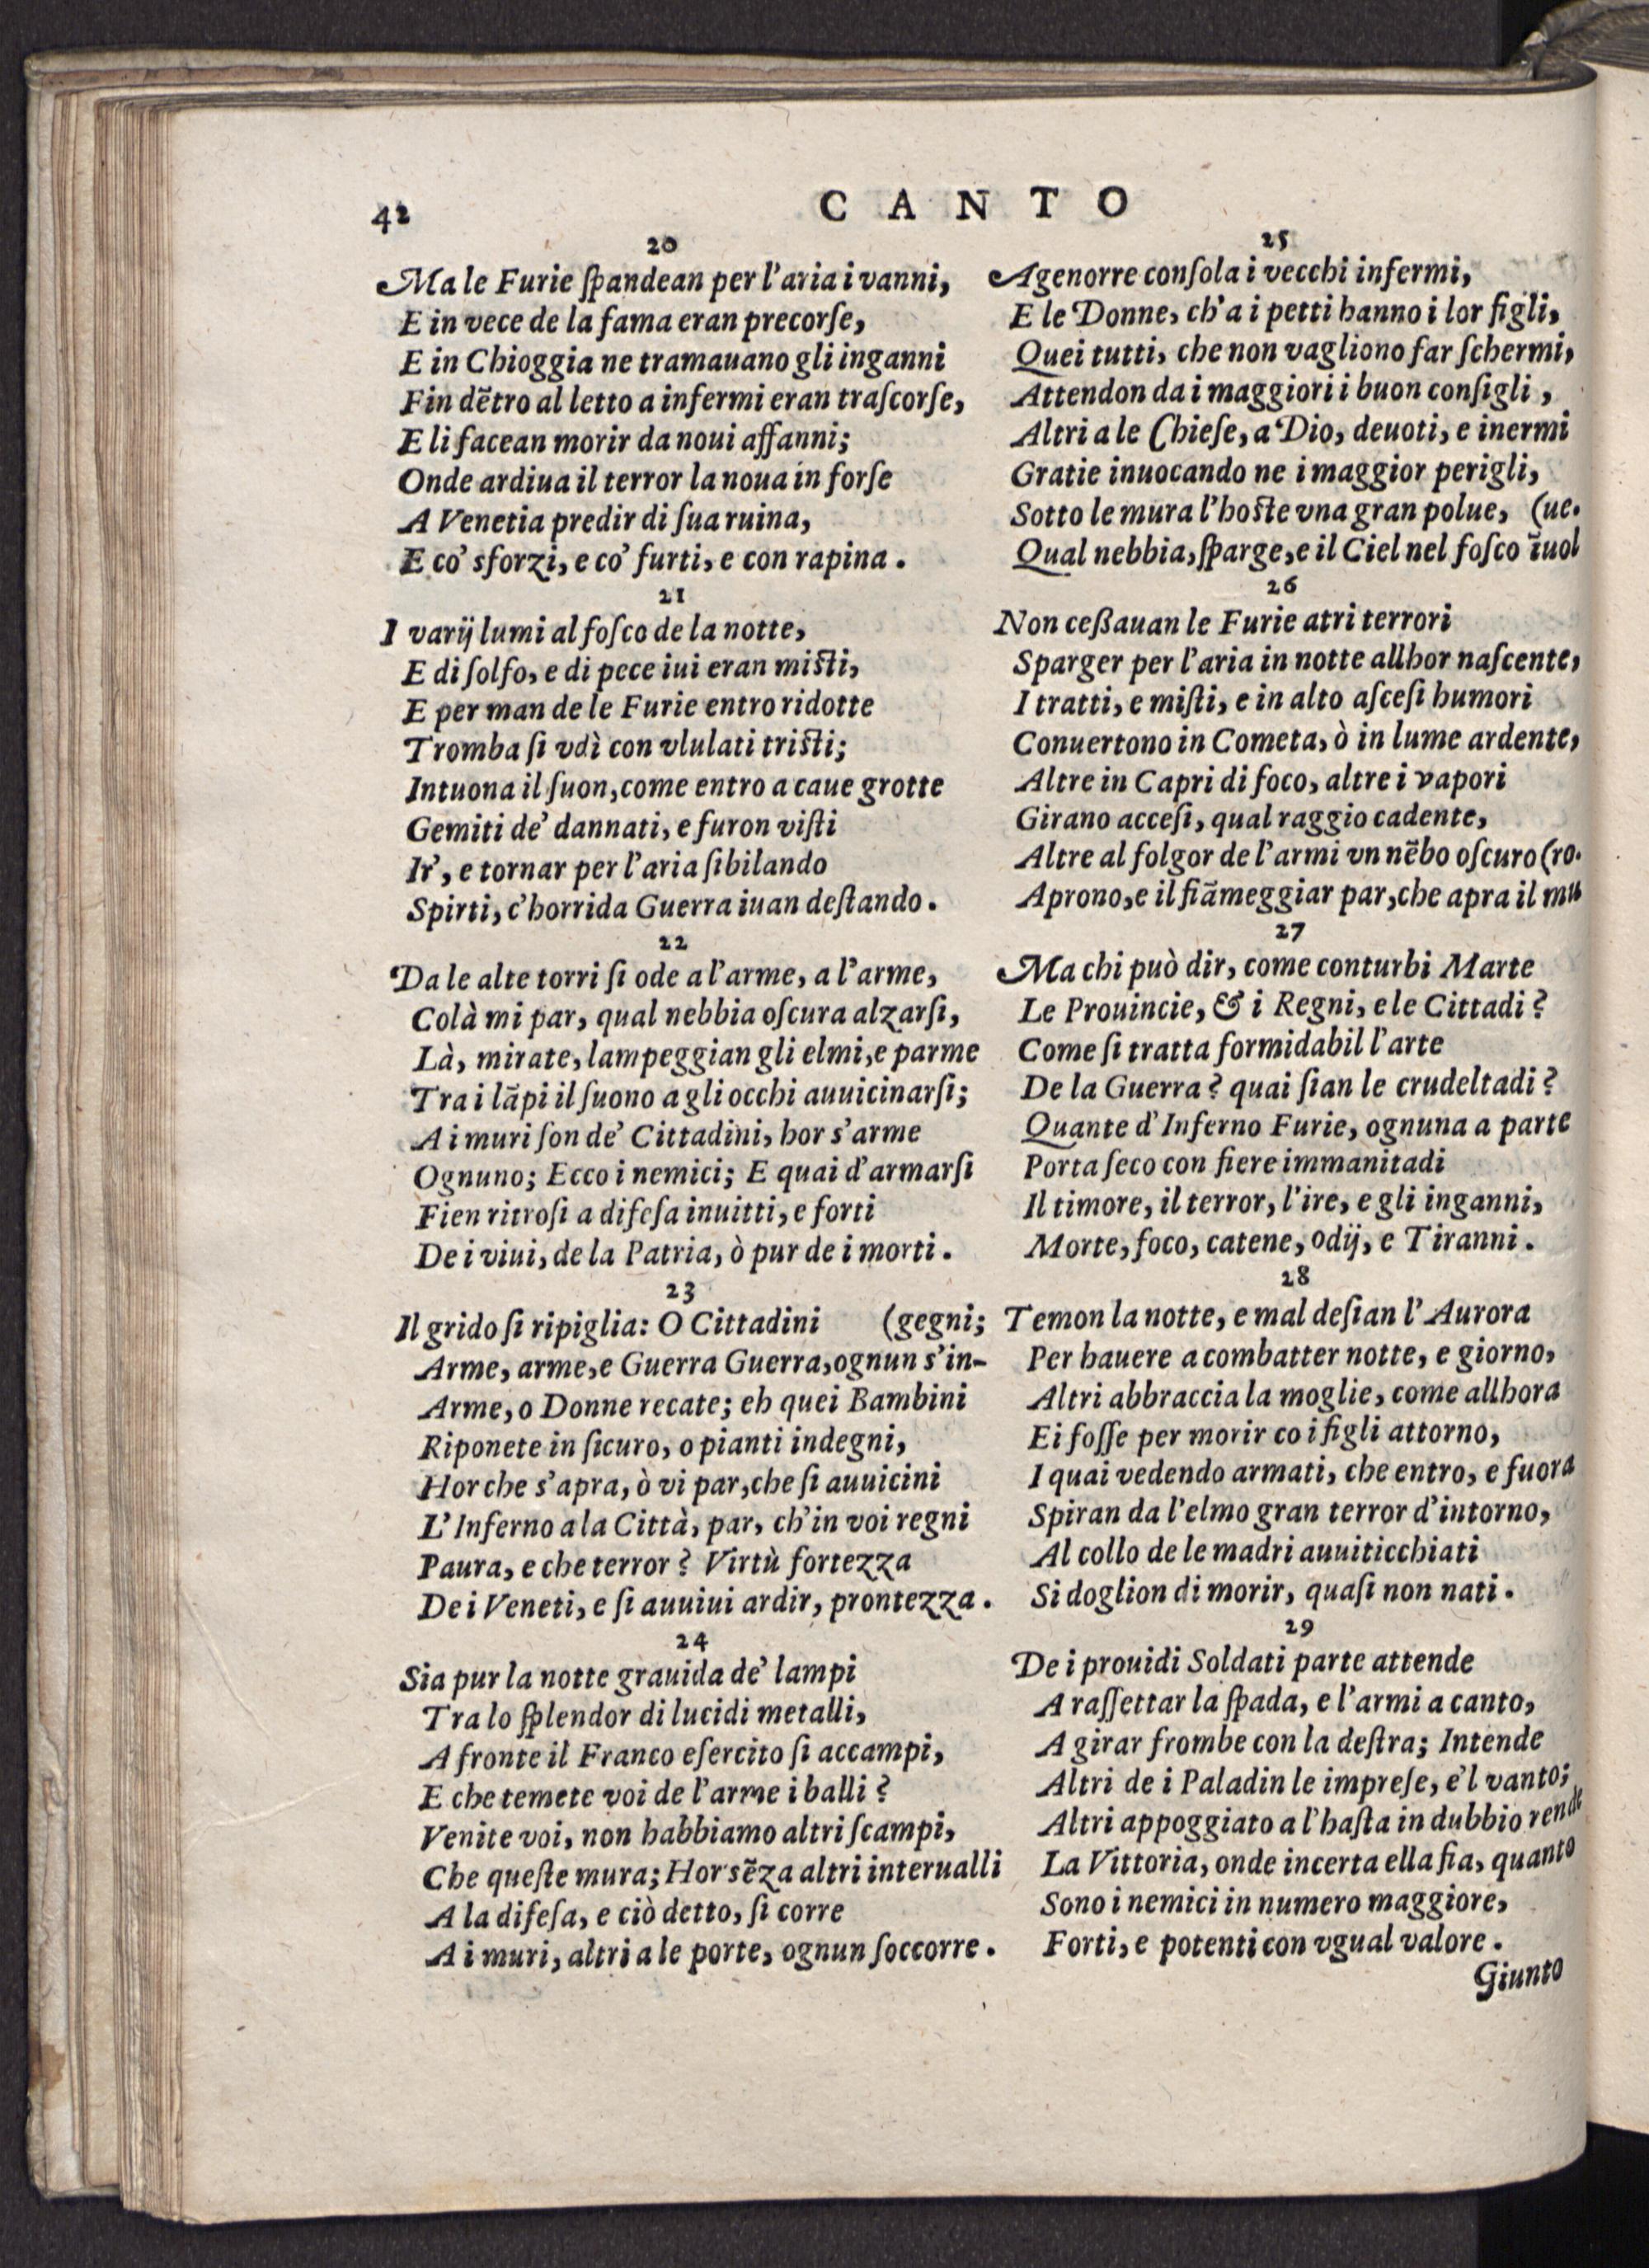 42
CANTO
20
Ma le Furie ſpandean per l'aria i vanni,
E in vece de la fama eran precorſe,
E in Chioggia ne tramauano gli inganni
Fin dẽtro al letto a infermi eran traſcorſe,
E li facean morir da noui affanni;
Onde ardiua il terror la noua in forſe
A Venetia predir di ſua ruina,
E co' sforzi, e co' furti, e con rapina.
21
I varij lumi al foſco de la notte,
E di ſolfo, e di pece iui eran miſti,
E per man de le Furie entro ridotte
Tromba ſi vdì con vlulati triſti;
Intuona il ſuon, come entro a caue grotte
Gemiti de' dannati, e furon viſti
Ir', e tornar per l'aria ſibilando
Spirti, c'horrida Guerra iuan deſtando.
22
Da le alte torri ſi ode a l'arme, a l'arme,
Colà mi par, qual nebbia oſcura alzarſi,
Là, mirate, lampeggian gli elmi, e parme
Tra i lãpi il ſuono a gli occhi auuicinarſi;
A i muri ſon de' Cittadini, hor s'arme
Ognuno; Ecco i nemici; E quai d'armarſi
Fien ritroſi a difeſa inuitti, e forti
De i viui, de la Patria, ò pur de i morti.
23
Il grido ſi ripiglia: O Cittadini (gegni;
Arme, arme, e Guerra Guerra, ognun s'in-
Arme, o Donne recate; eh quei Bambini
Riponete in ſicuro, o pianti indegni,
Hor che s'apra, ò vi par, che ſi auuicini
L'Inferno a la Città, par, ch'in voi regni
Paura, e che terror? Virtù fortezza
De i Veneti, e ſi auuiui ardir, prontezza.
24
Sia pur la notte grauida de' lampi
Tra lo ſplendor di lucidi metalli,
A fronte il Franco eſercito ſi accampi,
E che temete voi de l'arme i balli?
Venite voi, non habbiamo altri ſcampi,
Che queſte mura; Hor sẽza altri interualli
A la difeſa, e ciò detto, ſi corre
A i muri, altri a le porte, ognun ſoccorre.
25
Agenorre conſola i vecchi infermi,
E le Donne, ch'a i petti hanno i lor figli,
Quei tutti, che non vagliono far ſchermi,
Attendon da i maggiori i buon conſigli,
Altri a le Chieſe, a Dio, deuoti, e inermi
Gratie inuocando ne i maggior perigli,
Sotto le mura l'hoſte vna gran polue, (ue.
Qual nebbia, ſparge, e il Ciel nel foſco ĩuol
26
Non ceßauan le Furie atri terrori
Sparger per l'aria in notte allhor naſcente,
I tratti, e miſti, e in alto aſceſi humori
Conuertono in Cometa, ò in lume ardente,
Altre in Capri di foco, altre i vapori
Girano acceſi, qual raggio cadente,
Altre al folgor de l'armi vn nẽbo oſcuro (ro.
Aprono, e il fiãmeggiar par, che apra il mu
27
Ma chi può dir, come conturbi Marte
Le Prouincie, & i Regni, e le Cittadi?
Come ſi tratta formidabil l'arte
De la Guerra? quai ſian le crudeltadi?
Quante d'Inferno Furie, ognuna a parte
Porta ſeco con fiere immanitadi
Il timore, il terror, l'ire, e gli inganni,
Morte, foco, catene, odij, e Tiranni.
28
Temon la notte, e mal deſian l'Aurora
Per hauere a combatter notte, e giorno,
Altri abbraccia la moglie, come allhora
Ei foſſe per morir co i figli attorno,
I quai vedendo armati, che entro, e fuora
Spiran da l'elmo gran terror d'intorno,
Al collo de le madri auuiticchiati
Si doglion di morir, quaſi non nati.
29
De i prouidi Soldati parte attende
A raſſettar la ſpada, e l'armi a canto,
A girar frombe con la deſtra; Intende
Altri de i Paladin le impreſe, e'l vanto;
Altri appoggiato a l'haſta in dubbio rende
La Vittoria, onde incerta ella fia, quanto
Sono i nemici in numero maggiore,
Forti, e potenti con vgual valore.
Giunto